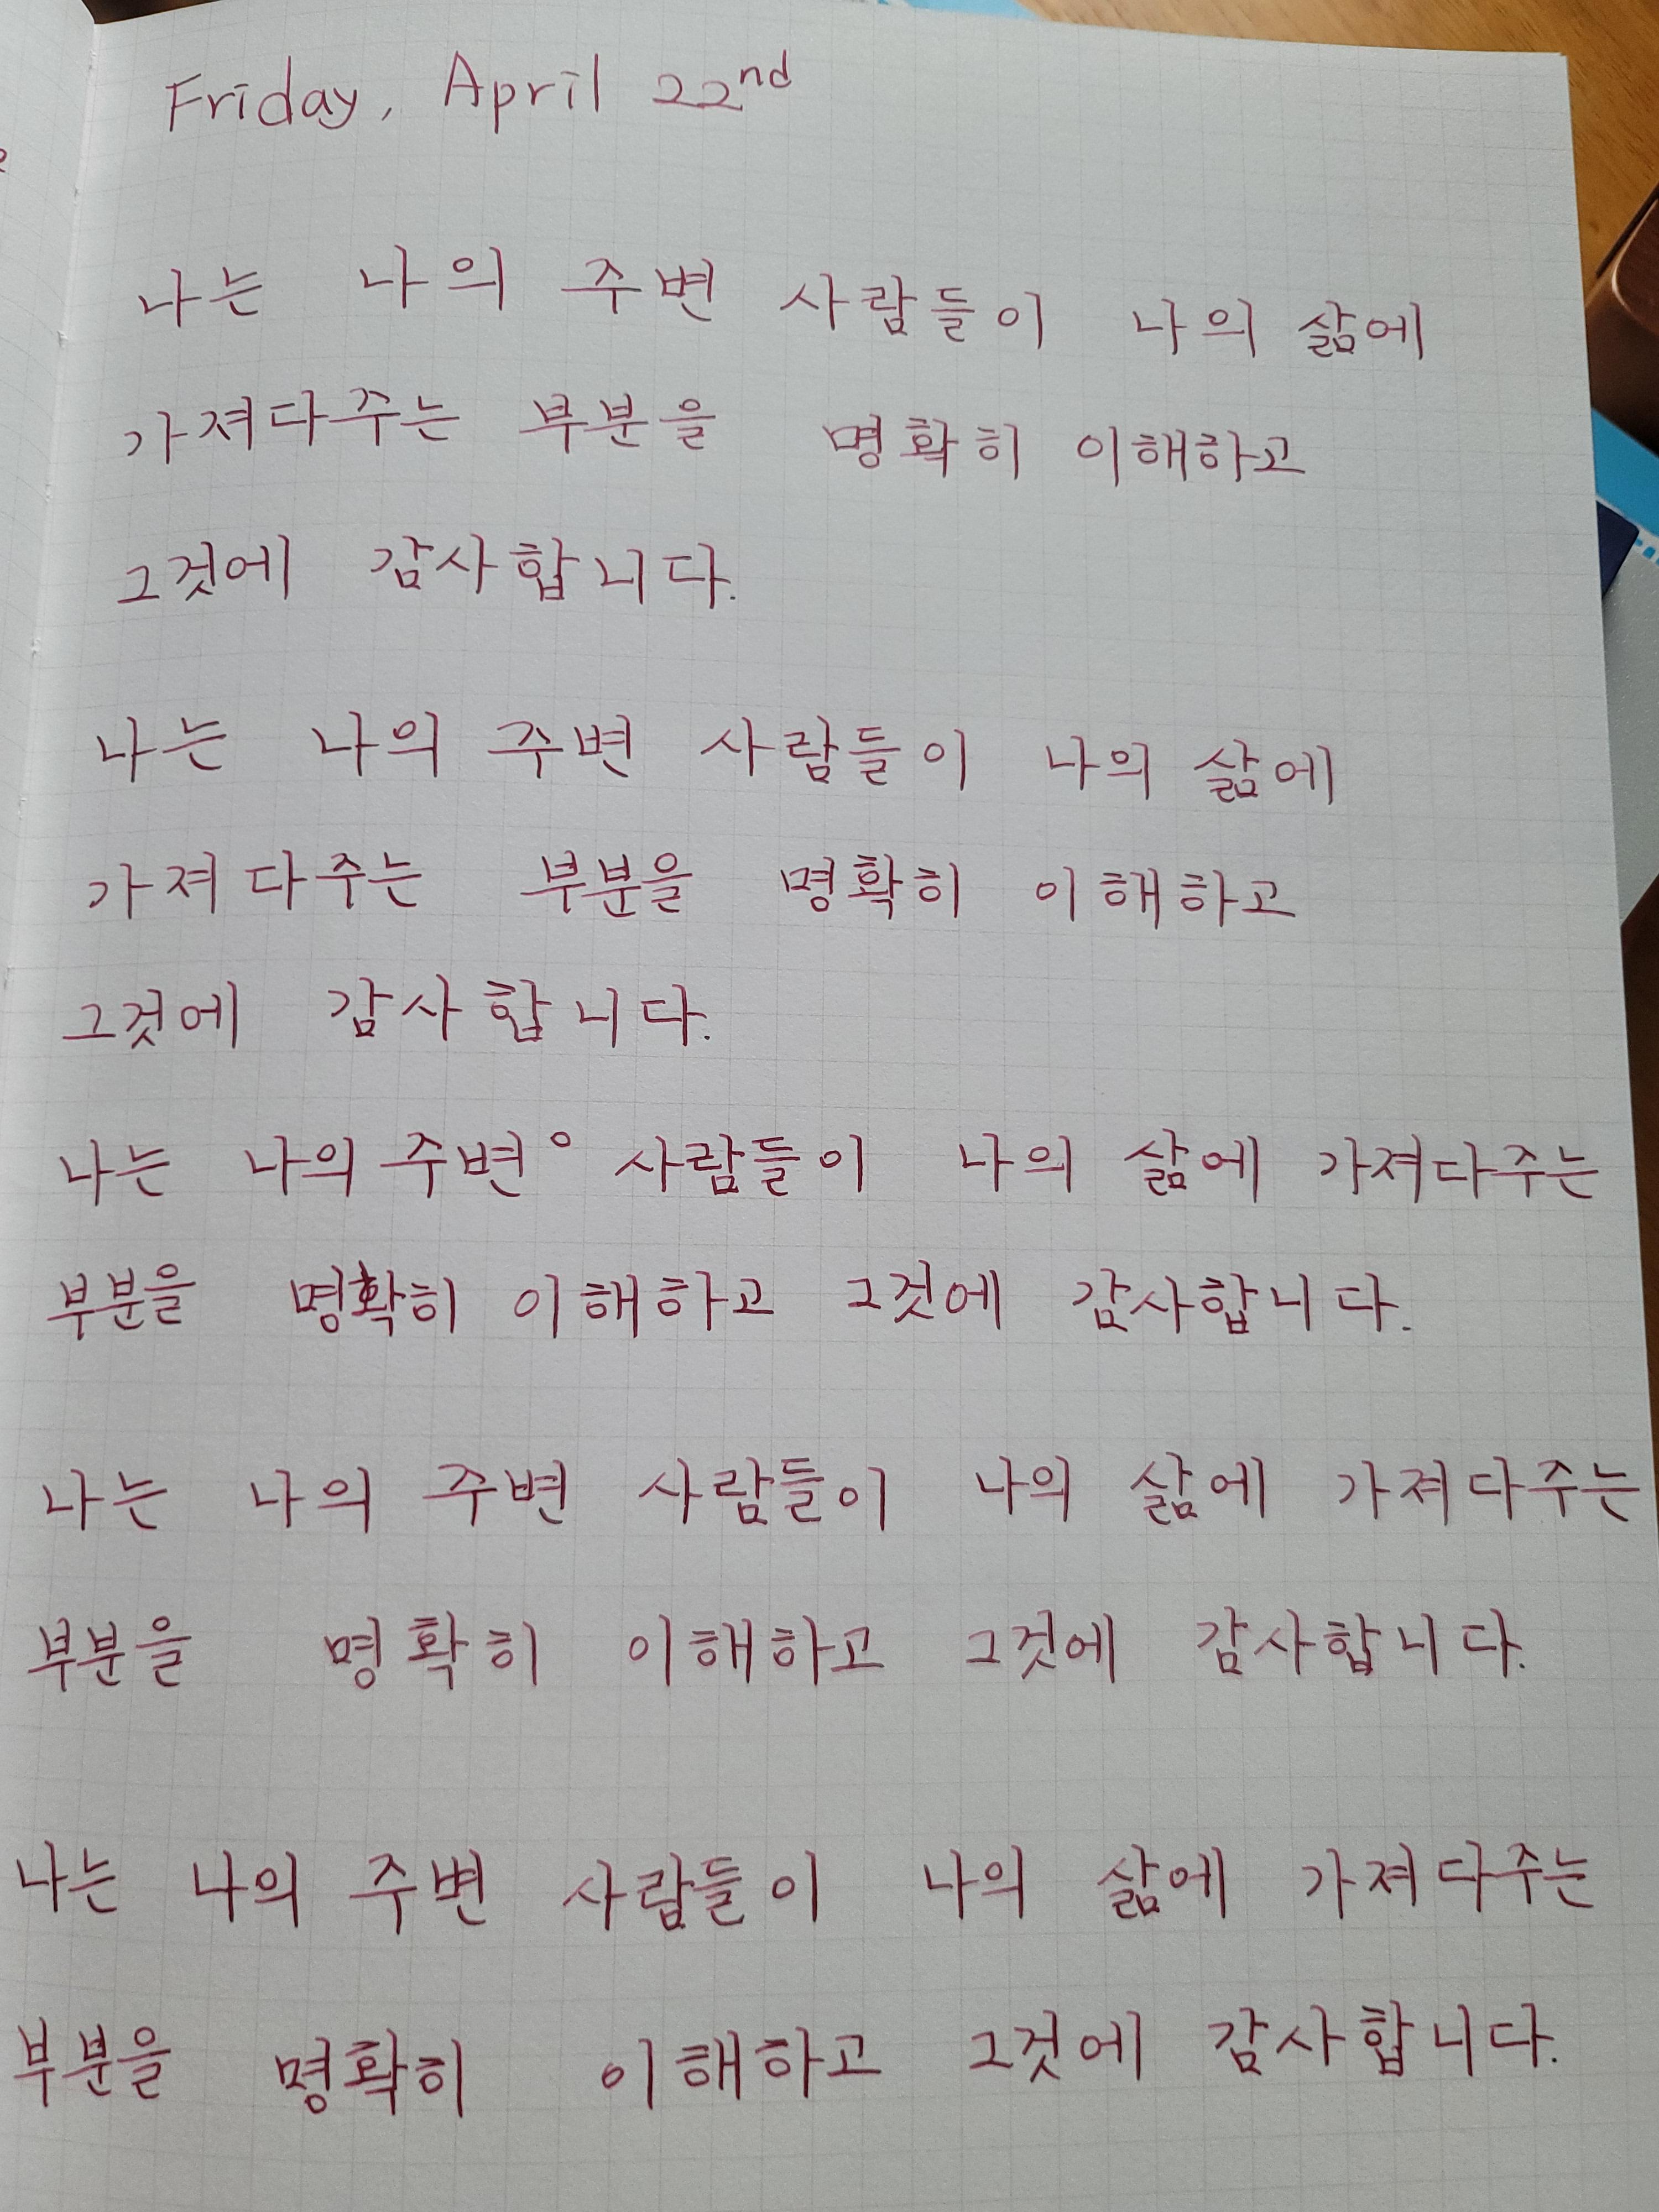 Friday, April 22nd
나는 나의 주변 사람들이 나의 삶에
가져다주는 부분을 명확히 이해하고
그것에 감사합니다.
나는 나의 주변 사람들이 나의 삶에
가져다주는 부분을 명확히 이해하고
그것에 감사합니다.
나는 나의 주변 사람들이 나의 삶에 가져다주는
부분을 명확히 이해하고 그것에 감사합니다.
나는 나의 주변 사람들이 나의 삶에 가져다주는
부분을 명확히 이해하고 그것에 감사합니다.
나는 나의 주변 사람들이 나의 삶에 가져다주는
부분을 명확히 이해하고 그것에 감사합니다.